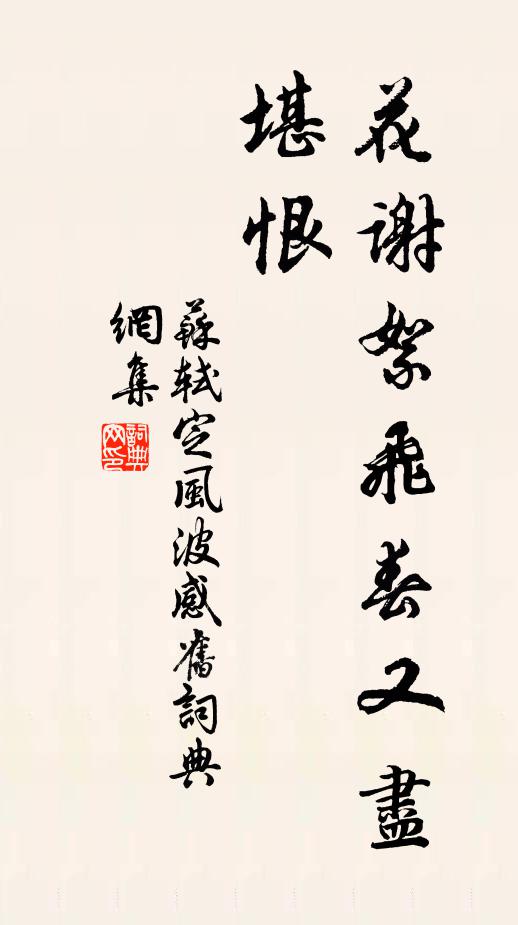 花謝絮飛春又盡
堪恨
蘇軾定風波感舊詞典
網集
詞典
网印